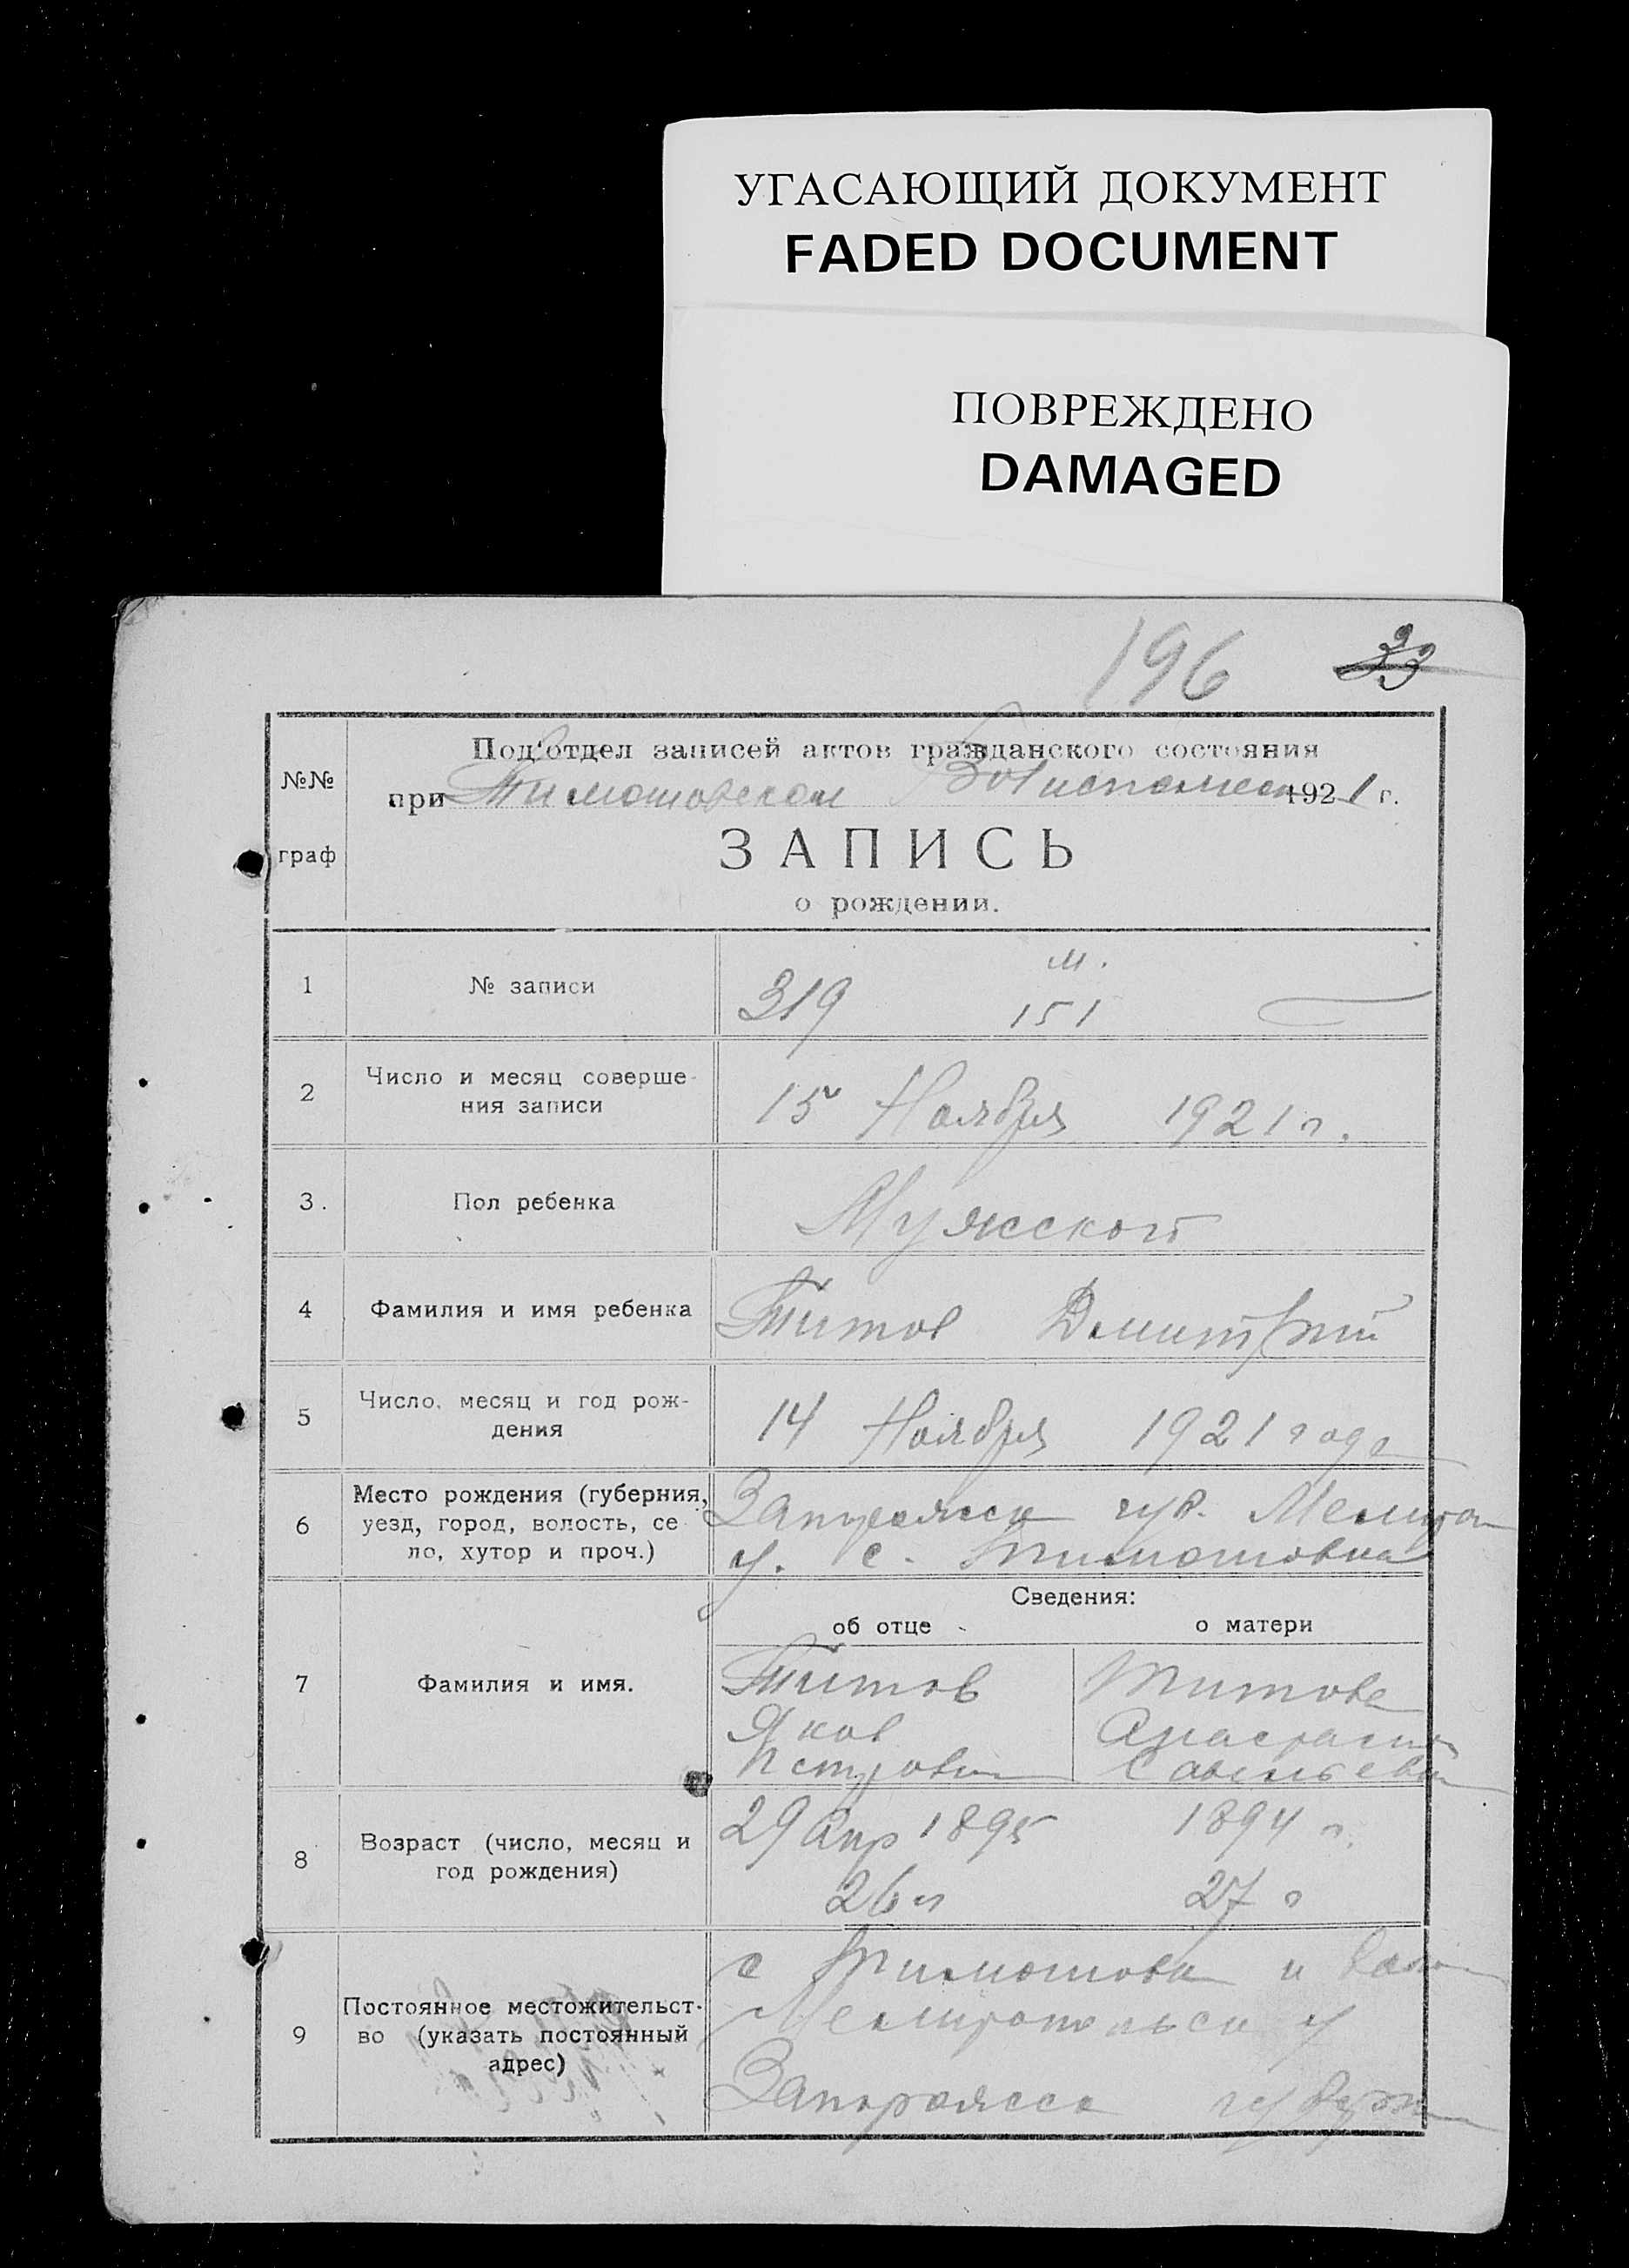 УГАСАЮЩИЙ ДОКУМЕНТ
FADED DOCUMENT
ПОВРЕЖДЕНО
DAMAGED
196 33
№№ граф
Под'отдел записей актов гражданского состояния
при Тимошовском Волисполком 1921 г.
ЗАПИСЬ
о рождении.
1 № записи 319 м. 151
2 Число и месяц соверше-
ния записи
15 Ноября 1921 г.
3. Пол ребенка Мужской
4 Фамилия и имя ребенка Титов Дмитрий
5 Число, месяц и год рож-
дения
14 Ноября 1921 года
6 Место рождения (губерния,
уезд, город, волость, се-
ло, хутор и проч.)
Запорожск губ. Мелитоп
у. с. Тимошовка
Сведения:
об отце о матери
7 Фамилия и имя.
Титов
Яков
Петрович
Титова
Анастасия
Савельевна
8 Возраст (число, месяц и
год рождения)
29 Апр 1895
26 л
1894 г.
27 л
9 Постоянное местожительст-
во (указать постоянный
адрес)
с Тимошовка и
Мелитопольск у
Запорожск губерн